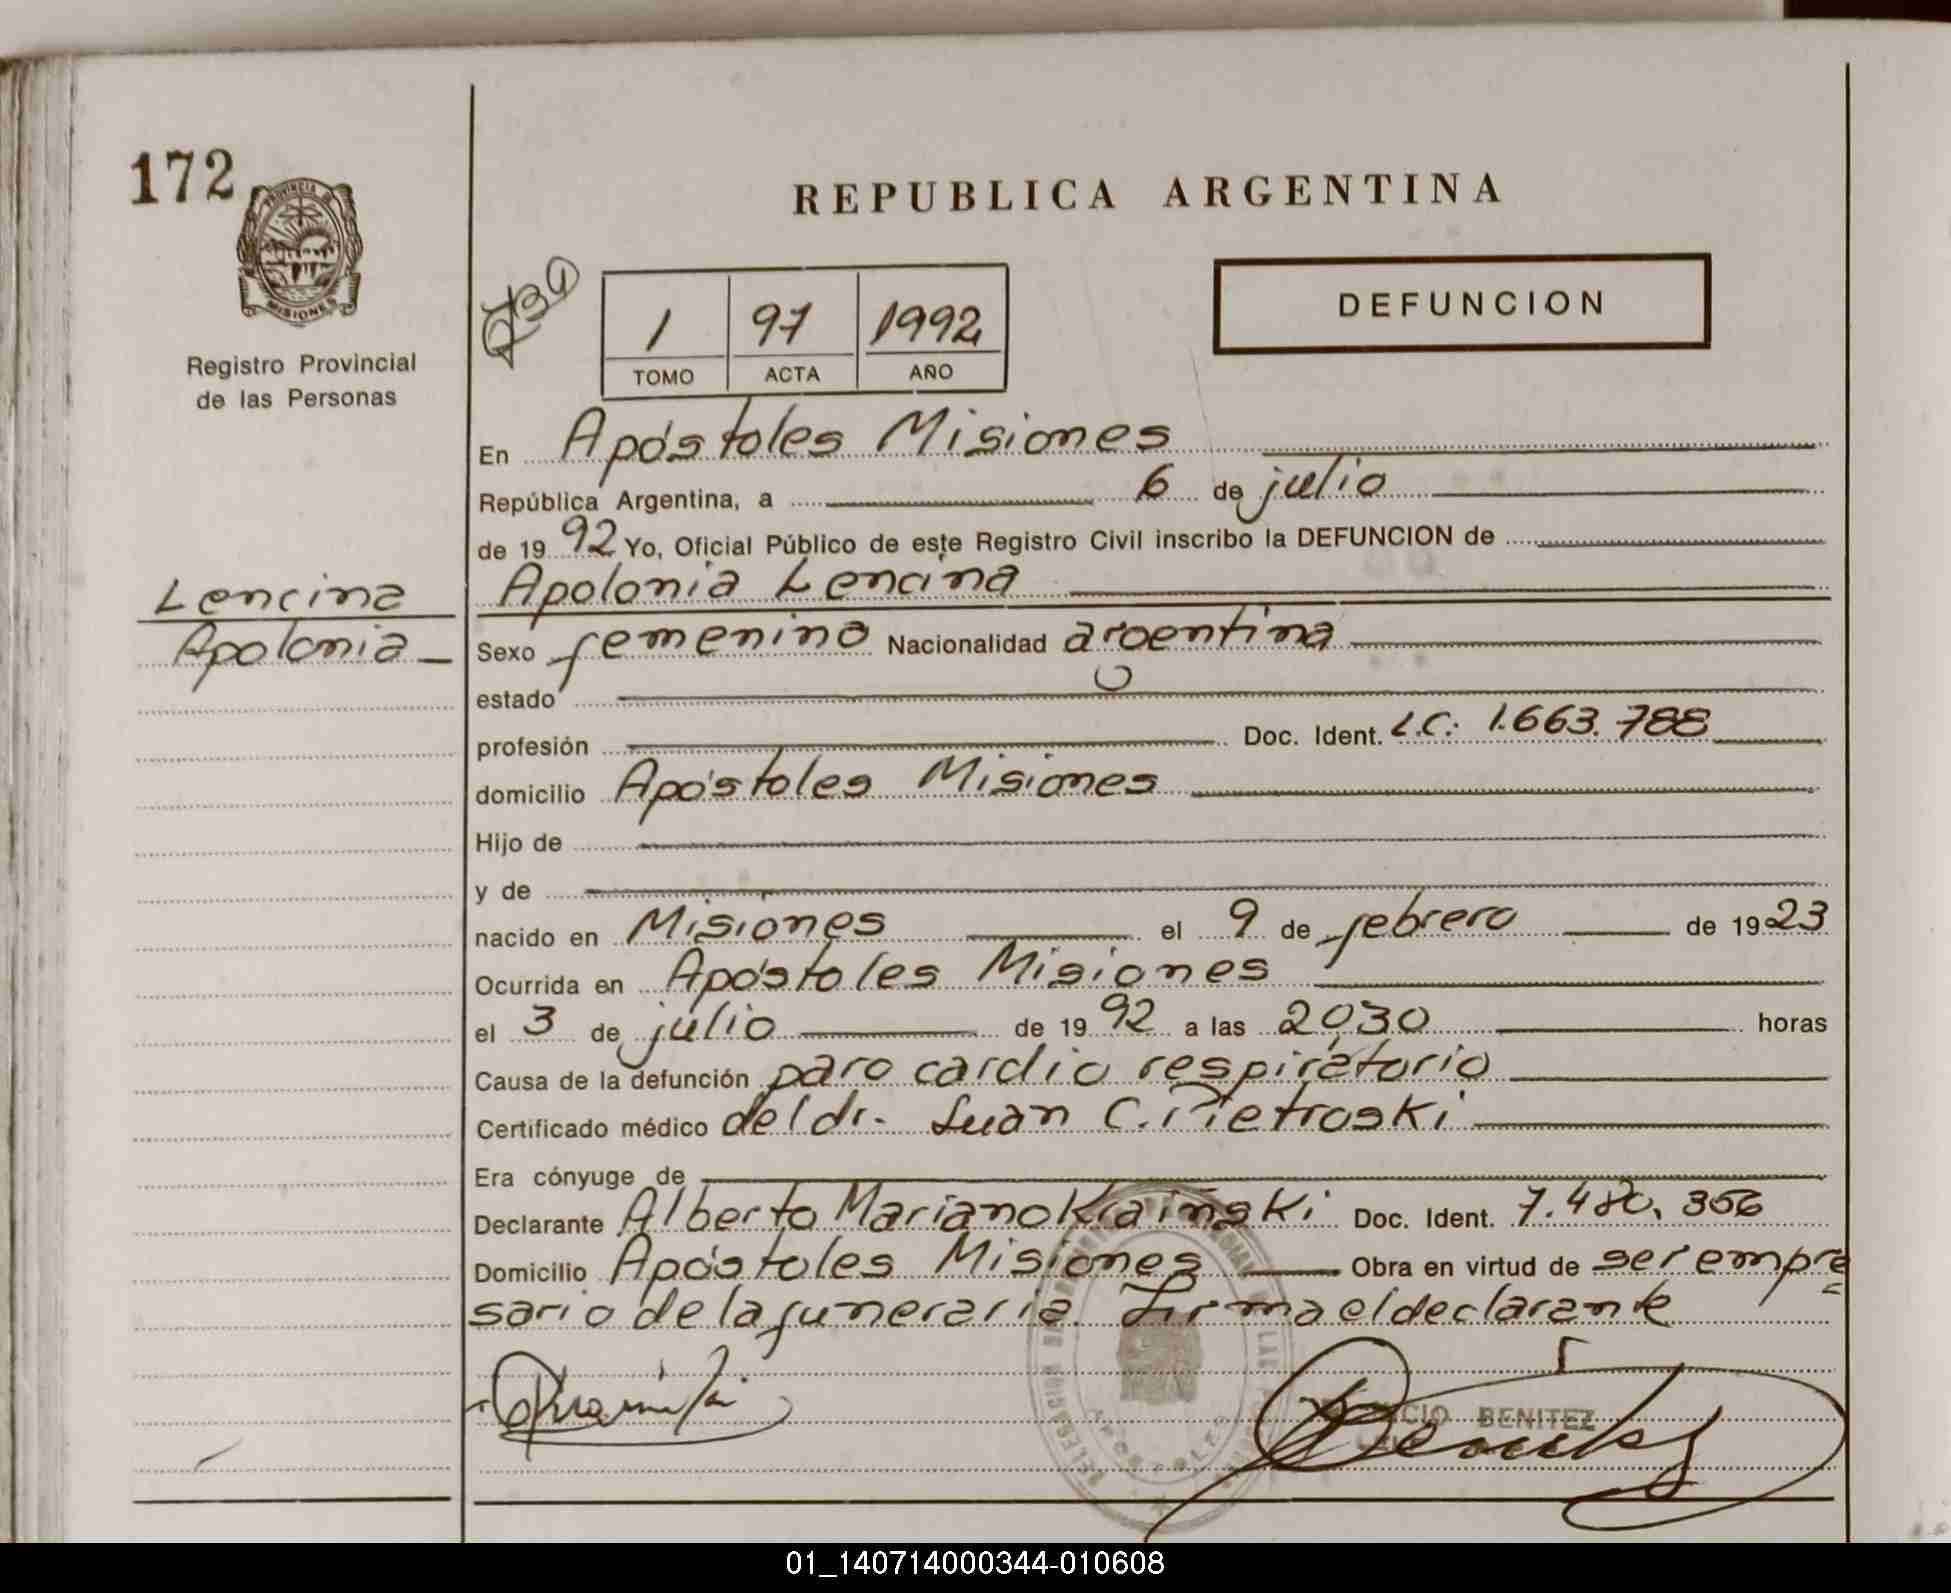 172
PROVINCIA DE
MISIONES
Registro Provincial
de las Personas
REPUBLICA ARGENTINA
1 97 1992
TOMO ACTA AÑO
DEFUNCION
En Apóstoles Misiones
República Argentina, a 6 de julio
de 19 92 Yo, Oficial Público de este Registro Civil inscribo la DEFUNCION de
Lencina
Apolonia
Apolonia Lencina
Sexo femenino Nacionalidad argentina
estado
profesión Doc. Ident. L.C: 1.663.788
domicilio Apóstoles Misiones
Hijo de
y de
nacido en Misiones el 9 de febrero de 1923
Ocurrida en Apóstoles Misiones
el 3 de julio de 19 92 a las 20,30 horas
Causa de la defunción paro cardio respiratorio
Certificado médico del dr. Juan C. Pietroski
Era cónyuge de
Declarante Alberto Mariano Krainski Doc. Ident. 7.480.356
Domicilio Apóstoles Misiones Obra en virtud de ser empre
sario de la funeraria. Firma el declarante
BENITEZ
APOSTOLES
01_140714000344-010608